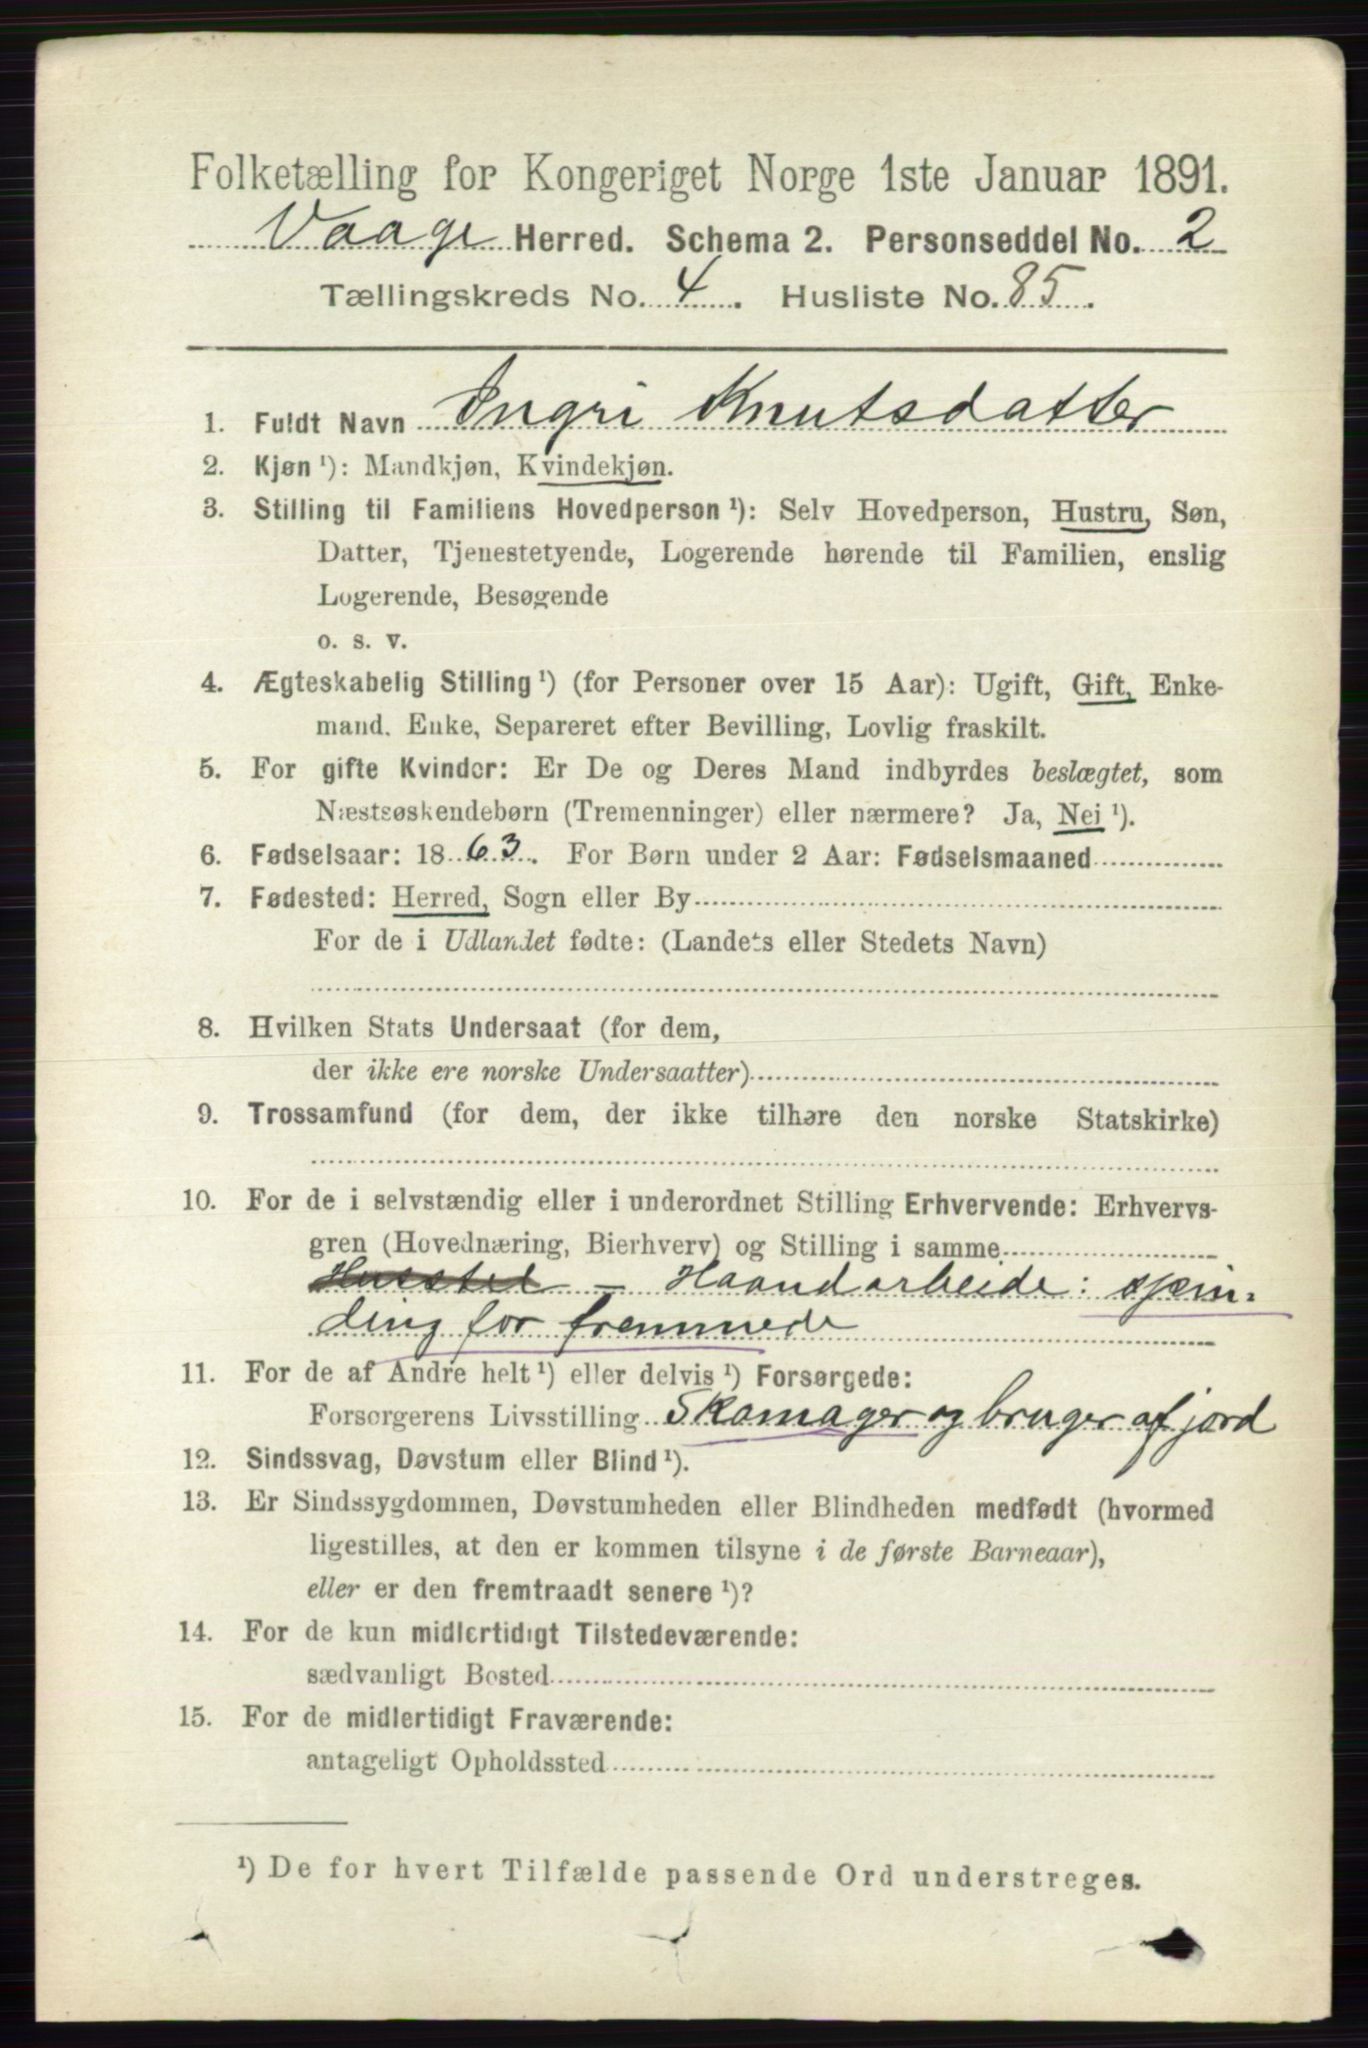 Folketælling for Kongeriget Norge 1ste Januar 1891.
Vaage Herred. Schema 2. Personseddel No. 2
Tællingskreds No. 4. Husliste No. 85.
1. Fuldt Navn Ingri Knutsdatter
2. Kjøn ¹): Mandkjøn, Kvindekjøn.
3. Stilling til Familiens Hovedperson ¹): Selv Hovedperson, Hustru, Søn,
Datter, Tjenestetyende, Logerende hørende til Familien, enslig
Logerende, Besøgende
o. s. v.
4. Ægteskabelig Stilling ¹) (for Personer over 15 Aar): Ugift, Gift, Enke-
mand, Enke, Separeret efter Bevilling, Lovlig fraskilt.
5. For gifte Kvinder: Er De og Deres Mand indbyrdes beslægtet, som
Næstsøskendebørn (Tremenninger) eller nærmere? Ja, Nei ¹).
6. Fødselsaar: 1863. For Børn under 2 Aar: Fødselsmaaned
7. Fødested: Herred, Sogn eller By
For de i Udlandet fødte: (Landets eller Stedets Navn)
8. Hvilken Stats Undersaat (for dem,
der ikke ere norske Undersaatter)
9. Trossamfund (for dem, der ikke tilhøre den norske Statskirke)
10. For de i selvstændig eller i underordnet Stilling Erhvervende: Erhvervs-
gren (Hovednæring, Bierhverv) og Stilling i samme
Husstel - Haandarbeide: spin-
ding for fremmede
11. For de af Andre helt ¹) eller delvis ¹) Forsørgede:
Forsørgerens Livsstilling Skomager og bruger af jord
12. Sindssvag, Døvstum eller Blind ¹).
13. Er Sindssygdommen, Døvstumheden eller Blindheden medfødt (hvormed
ligestilles, at den er kommen tilsyne i de første Barneaar),
eller er den fremtraadt senere ¹)?
14. For de kun midlertidigt Tilstedeværende:
sædvanligt Bosted
15. For de midlertidigt Fraværende:
antageligt Opholdssted
¹) De for hvert Tilfælde passende Ord understreges.